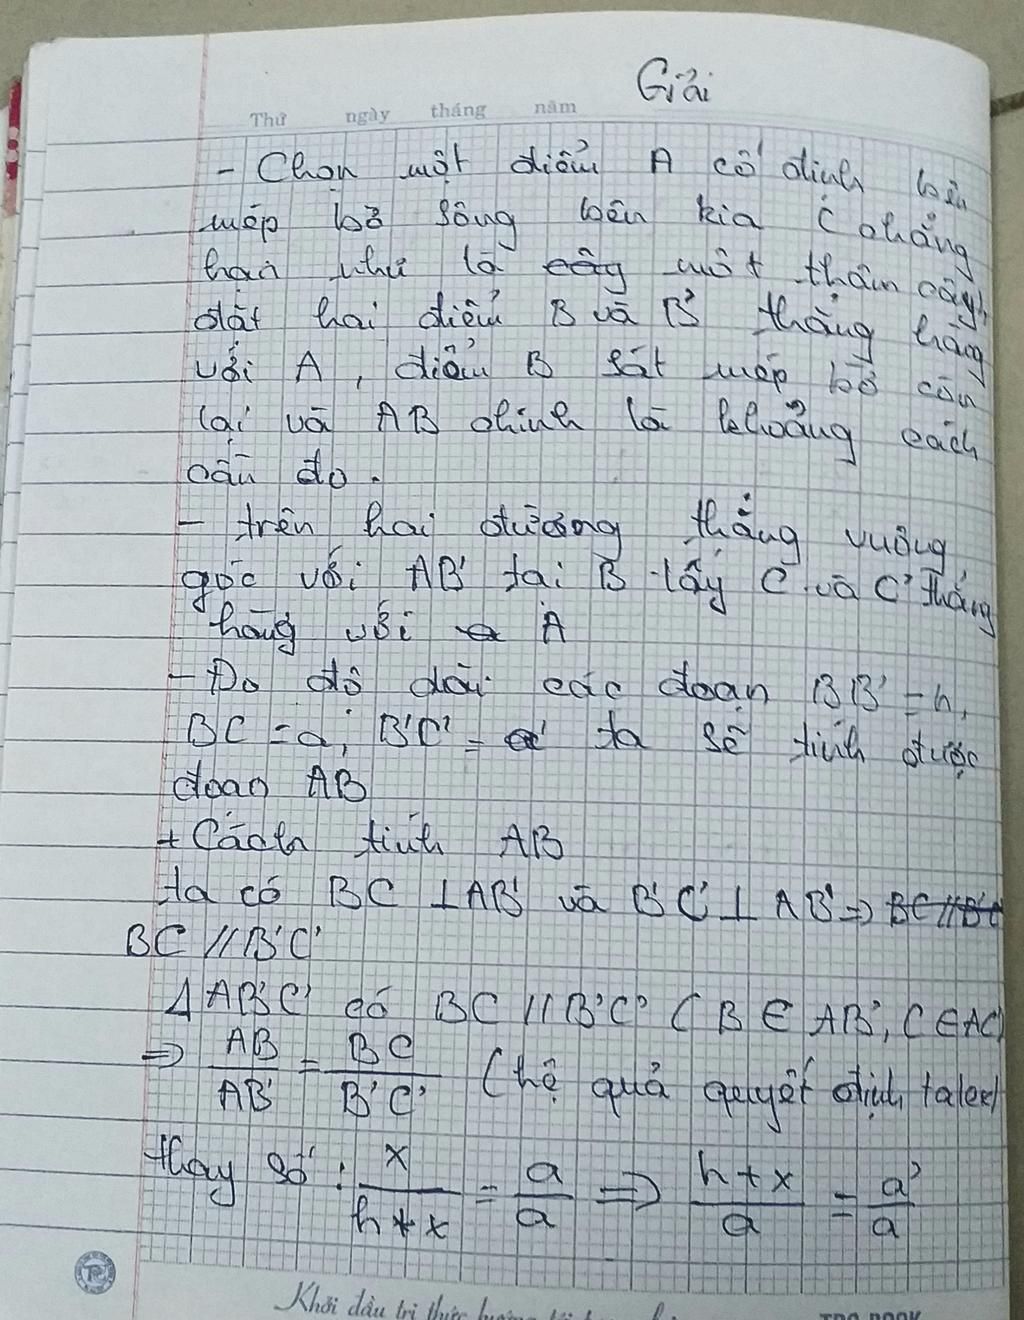 Giải
Thứ ngày tháng năm
- Chọn một điểm A cố định bên
mép bờ sông bên kia (chẳng
hạn như là cây một thân cây),
đặt hai điểm B và B' thẳng hàng
với A, điểm B sát mép bờ còn
lại và AB chính là khoảng cách
cần đo.
- trên hai đường thẳng vuông
góc với AB' tại B lấy C và C' thẳng
hàng với A
- Đo độ dài các đoạn BB' = h,
BC = a, B'C' = a' ta sẽ tính được
đoạn AB
+ Cách tính AB
ta có BC ⊥ AB' và B'C' ⊥ AB' => BC // B'C'
BC // B'C'
Δ AB'C' có BC // B'C' ( B ∈ AB', C ∈ AC'
=> AB/AB' = BC/B'C' (hệ quả quyết định talet)
thay số : x/h+x = a/a => h+x/a = a'/a
Khơi dầu tri thức